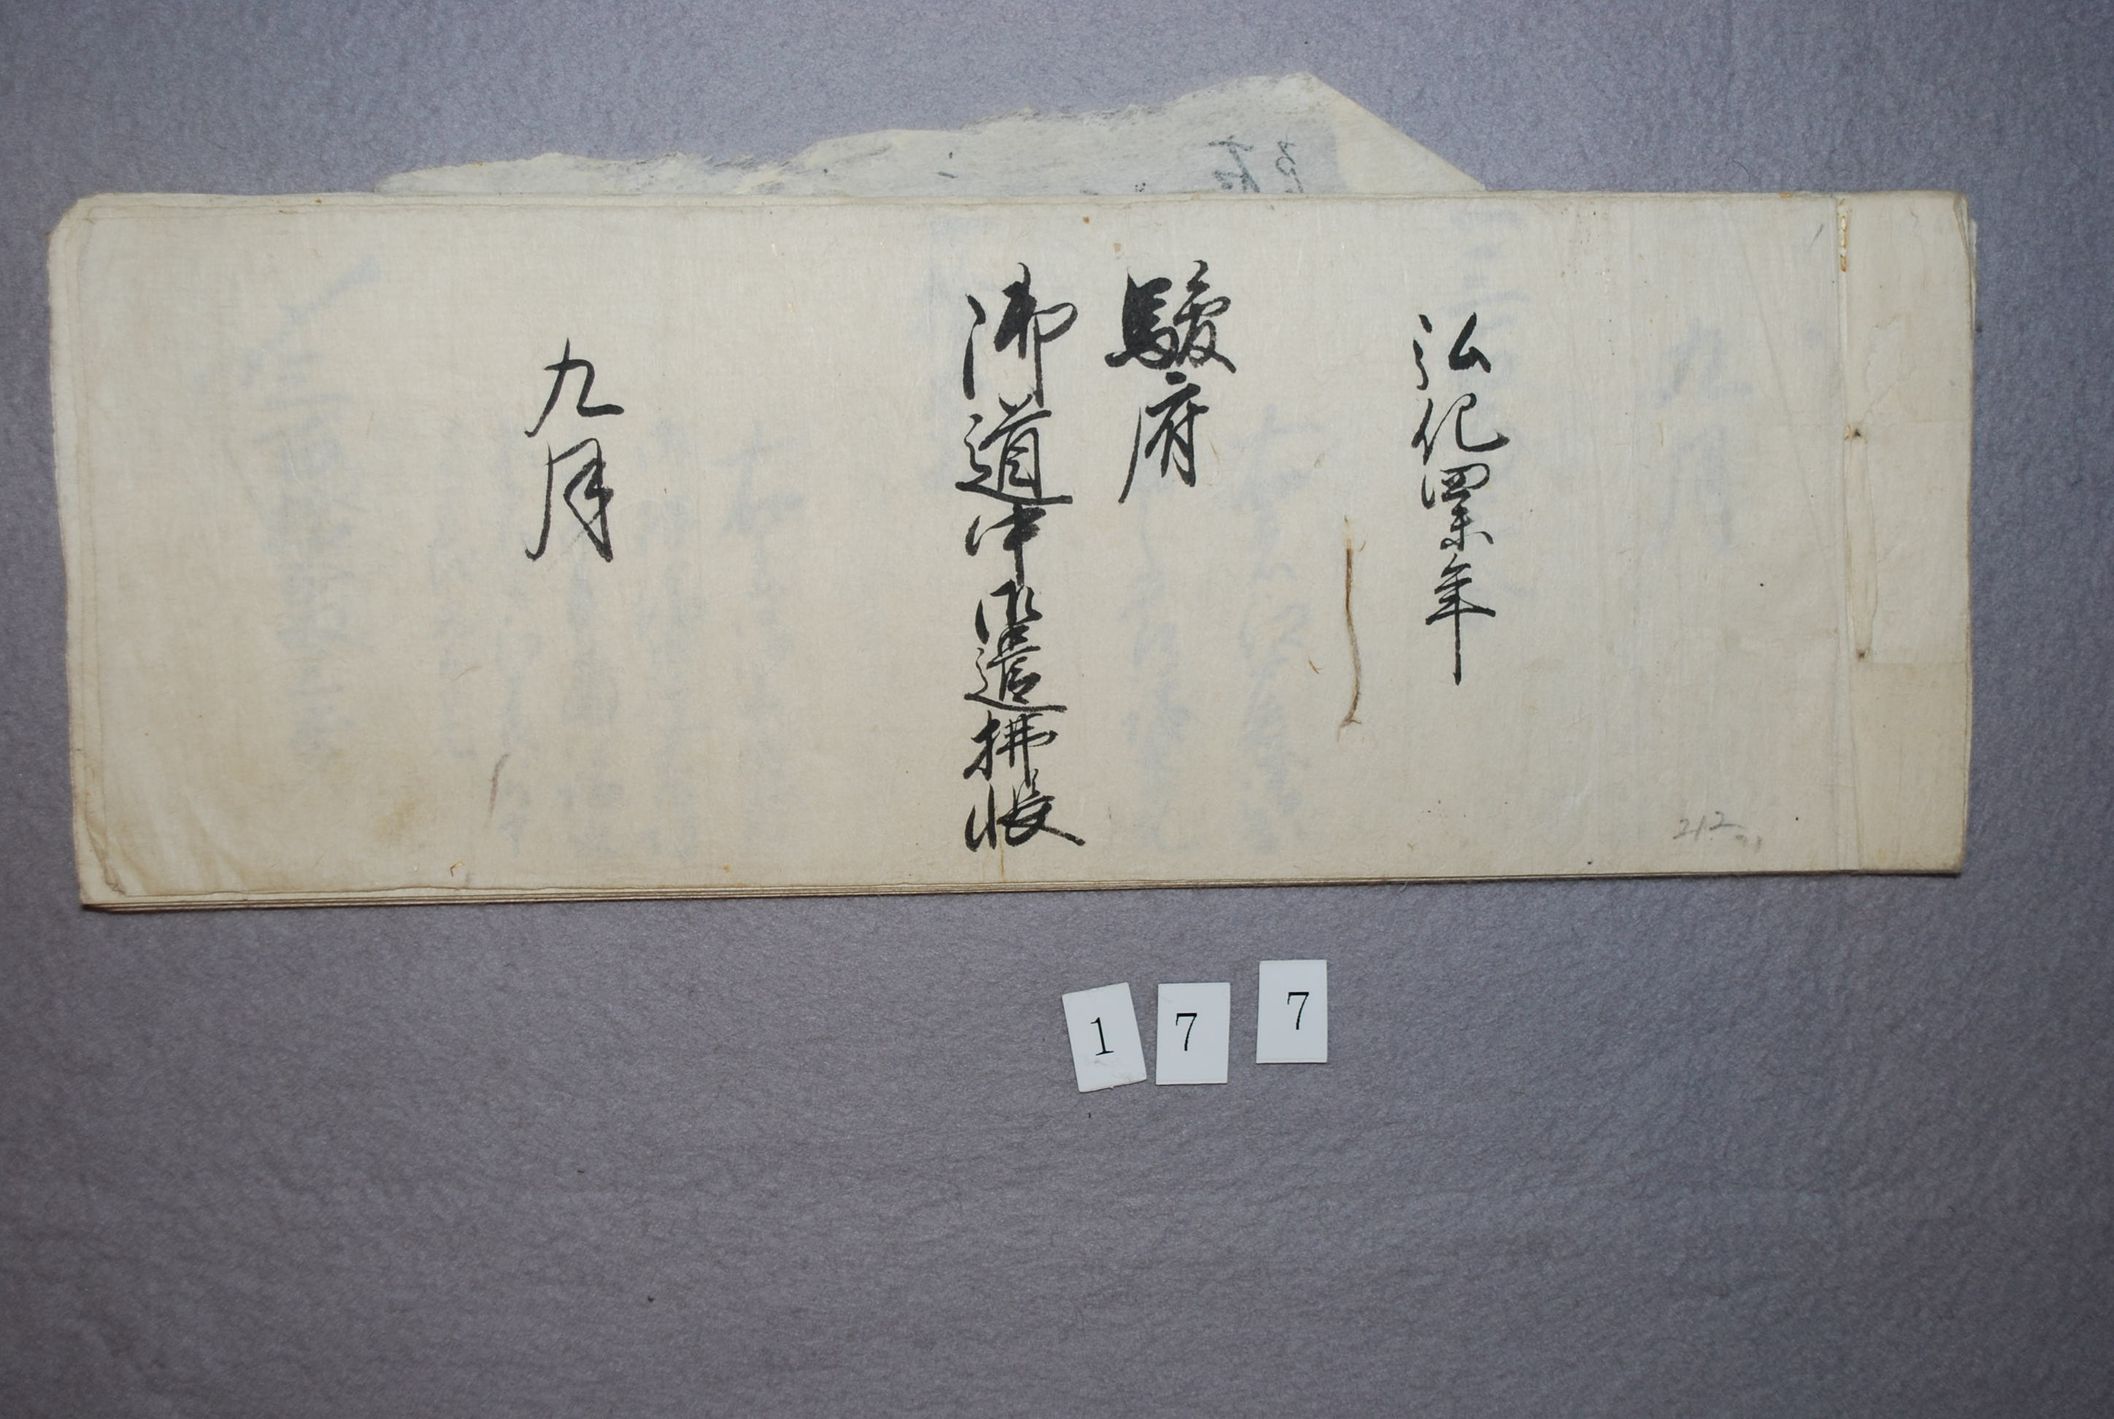 弘化四未年
駿府
御道中御遣拂帳
九月
212
1 7 7